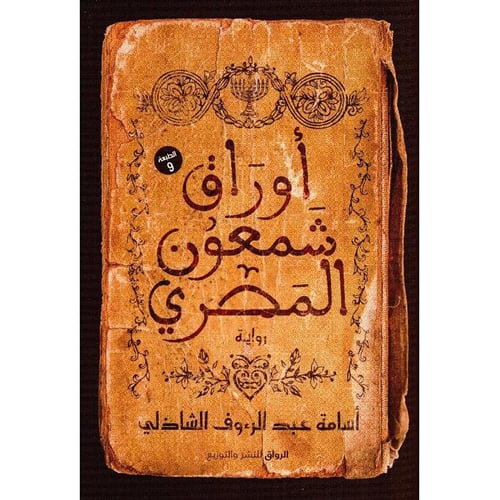 الطبعة
9
أوراق
شمعون
المصري
رواية
أسامة عبد الرءوف الشاذلي
الرواق للنشر والتوزيع